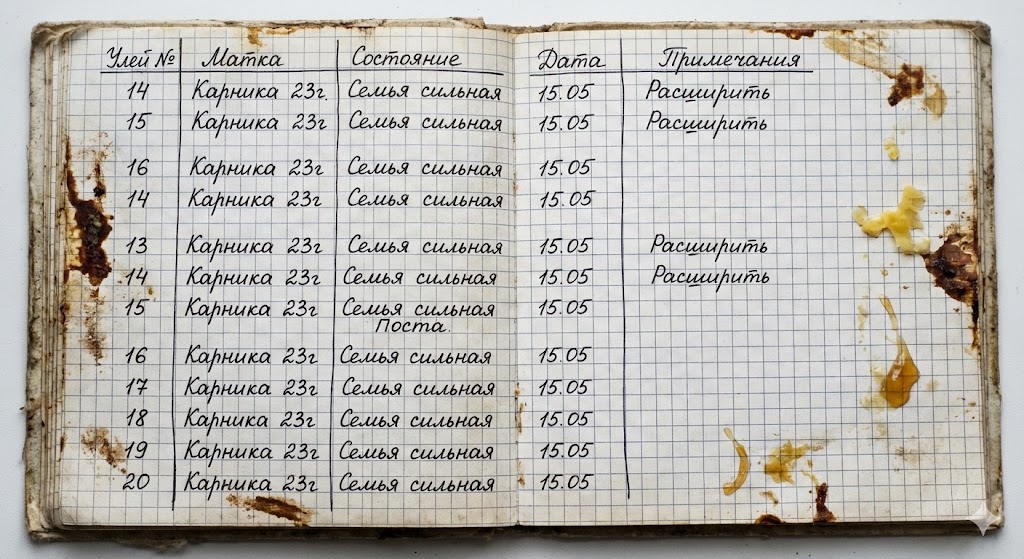 Улей № Матка Состояние Дата Примечания
14 Карника 23г. Семья сильная 15.05 Расширить
15 Карника 23г Семья сильная 15.05 Расширить
16 Карника 23г Семья сильная 15.05
14 Карника 23г Семья сильная 15.05
13 Карника 23г Семья сильная 15.05 Расширить
14 Карника 23г Семья сильная 15.05 Расширить
15 Карника 23г Семья сильная 15.05
Поста.
16 Карника 23г Семья сильная 15.05
17 Карника 23г Семья сильная 15.05
18 Карника 23г Семья сильная 15.05
19 Карника 23г Семья сильная 15.05
20 Карника 23г Семья сильная 15.05